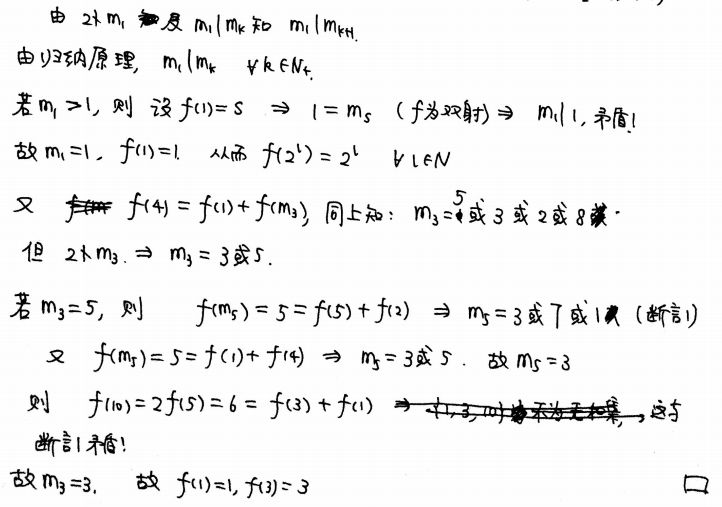 由 2∤m₁ 及 m₁|mₖ 知 m₁|mₖ₊₁.
由归纳原理, m₁|mₖ ∀k∈N₊.
若 m₁>1, 则 设 f(1)=s ⇒ 1=mₛ (f为双射) ⇒ m₁|1, 矛盾!
故 m₁=1, f(1)=1. 从而 f(2ˡ)=2ˡ ∀l∈N
又 f(4)=f(1)+f(m₃), 同上知: m₃=5或3或2或8.
但 2∤m₃. ⇒ m₃=3或5.
若 m₃=5, 则 f(m₅)=5=f(5)+f(2) ⇒ m₅=3或7或1 (断言1)
又 f(m₅)=5=f(1)+f(4) ⇒ m₅=3或5. 故 m₅=3
则 f(10)=2f(5)=6=f(3)+f(1), 这与
断言1矛盾!
故 m₃=3. 故 f(1)=1, f(3)=3 □